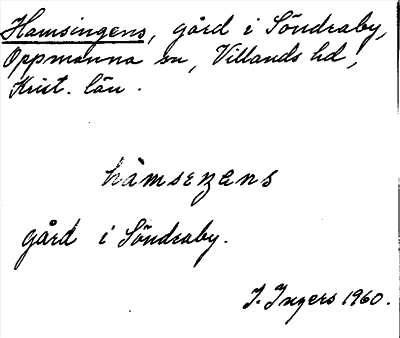 Hamsingens, gård i Söndraby,
Oppmanna sn, Villands hd,
Krist. län.
gård i Söndraby.
I. Ingers 1960.